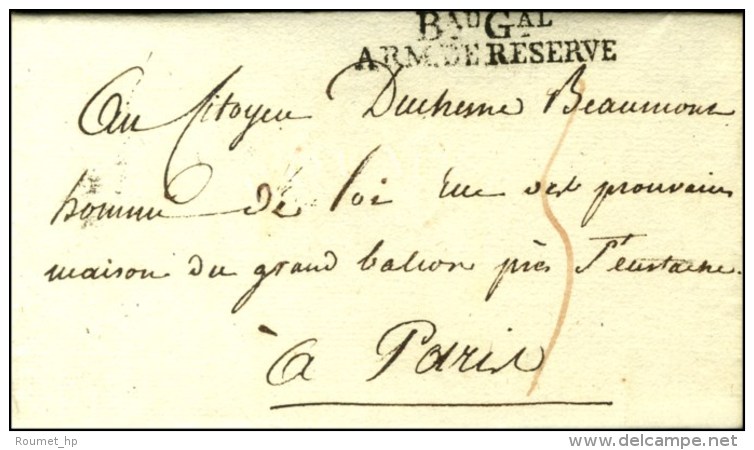 BAU GAL
ARM. DE RESERVE
Au Citoyen Duchesne Beaumont
homme de loi rue des prouvaires
maison du grand balcon près St eustache
à Paris
Roumet_hp
delcampe.net